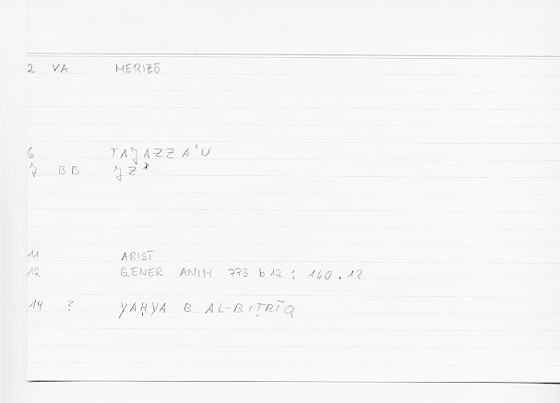 2 VA MERIZŌ
6 TAJAZZA'U
7 BB JZ*
11 ARIST
12 GENER ANIM 773 b12 ; 160.12
14 ? YAḤYA B. AL-BIṬRĪQ